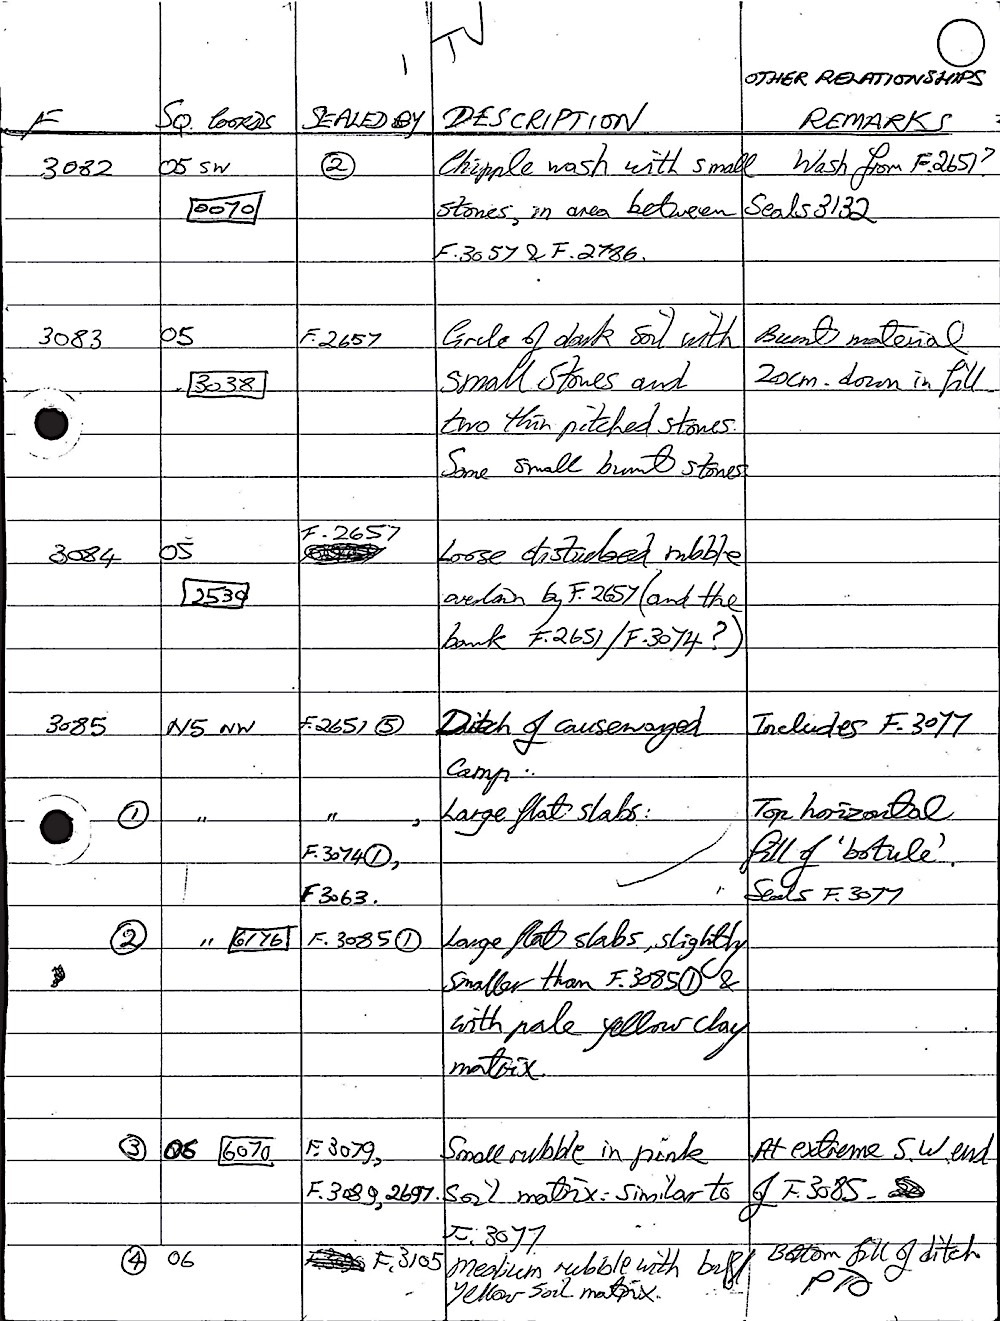 IV
OTHER RELATIONSHIPS
F SQ. COORDS SEALED BY DESCRIPTION REMARKS
3082 O5 SW ② Chipple wash with small Wash from F.2651?
0070 stones, in area between Seals 3132
F.3057 & F.2786.
3083 O5 F.2657 Circle of dark soil with Burnt material
3038 small stones and 20cm. down in fill
two thin pitched stones.
Some small burnt stones
F.2657
3084 O5 Loose disturbed rubble
2539 overlain by F.2657 (and the
bank F.2651/F.3074?)
3085 N5 NW F.2651 ⑤ Ditch of causewayed Includes F.3077
Camp.
① " " , Large flat slabs: Top horizontal
F.3074①, fill of 'botule'.
F3063. " Seals F.3077
② " 6176 F.3085① Large flat slabs, slightly
smaller than F.3085① &
with pale yellow clay
matrix.
③ O6 6070 F.3079, Small rubble in pink At extreme S.W. end
F.3089, 2697. Soil matrix: similar to of F.3085-
F.3077
④ O6 F.3105 medium rubble with buff Bottom fill of ditch
yellow soil matrix. PTO